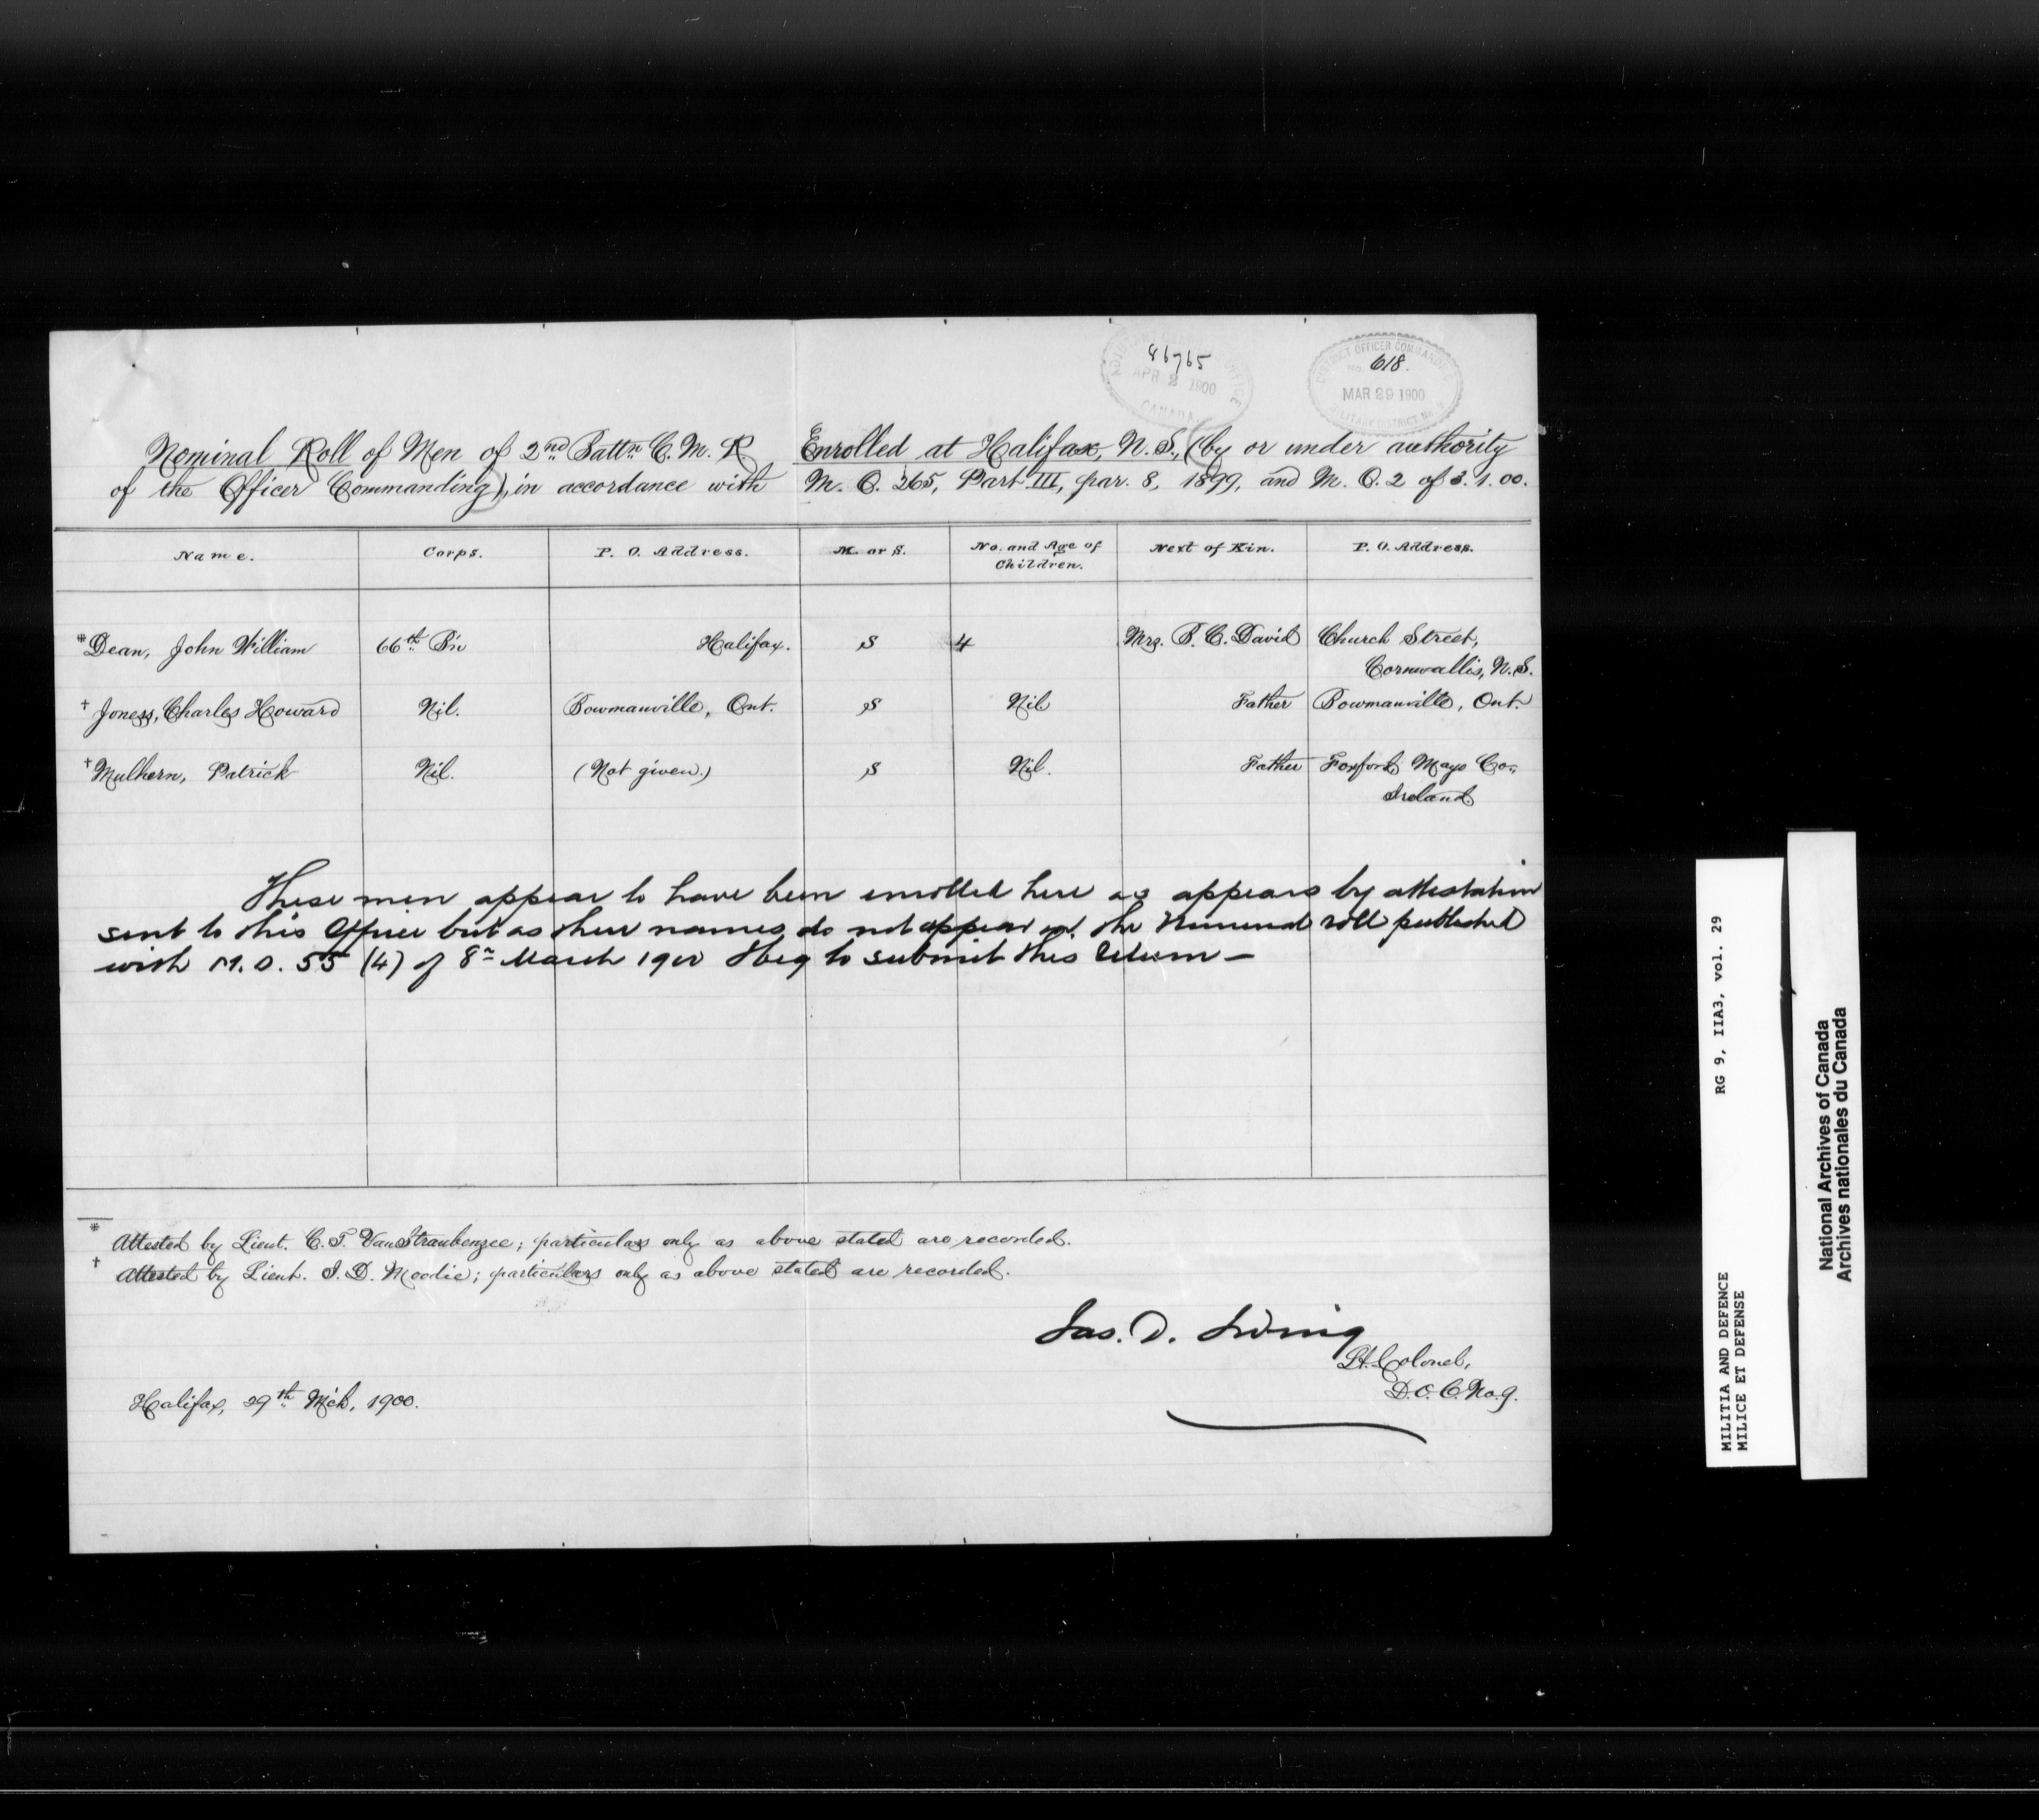 86765
ADJUTANT OFFICE
APR 2 1900
CANADA
DISTRICT OFFICER COMMANDING
No. 618.
MAR 29 1900
MILITARY DISTRICT No. 9
Nominal Roll of Men of 2nd Battn C. M. R. Enrolled at Halifax, N. S., (by or under authority
of the Officer Commanding), in accordance with M. O. 265, Part III, par. 8, 1899, and M. O. 2 of 3. 1. 00.
Name. Corps. P. O. Address. M. or S. No. and Age of Children. Next of Kin. P. O. Address.
* Dean, John William 66th Bn Halifax. S 4 Mrs. B. C. David Church Street,
Cornwallis, N. S.
† Joness, Charles Howard Nil. Bowmanville, Ont. S Nil Father Bowmanville, Ont.
† Mulhern, Patrick Nil. (Not given.) S Nil. Father Foxford Mayo Co.,
Ireland.
These men appear to have been enrolled here as appears by attestation
sent to this Office but as their names do not appear on the Nominal roll published
with M. O. 55 (4) of 8th March 1900 I beg to submit this return —
* Attested by Lieut. C. T. Van Straubenzee; particulars only as above stated are recorded.
† Attested by Lieut. J. D. Moodie; particulars only as above stated are recorded.
Jas. D. Irving
Lt. Colonel,
D. O. C. No. 9.
Halifax, 29th Mch, 1900.
RG 9, IIA3, vol. 29
MILITIA AND DEFENCE
MILICE ET DEFENSE
National Archives of Canada
Archives nationales du Canada